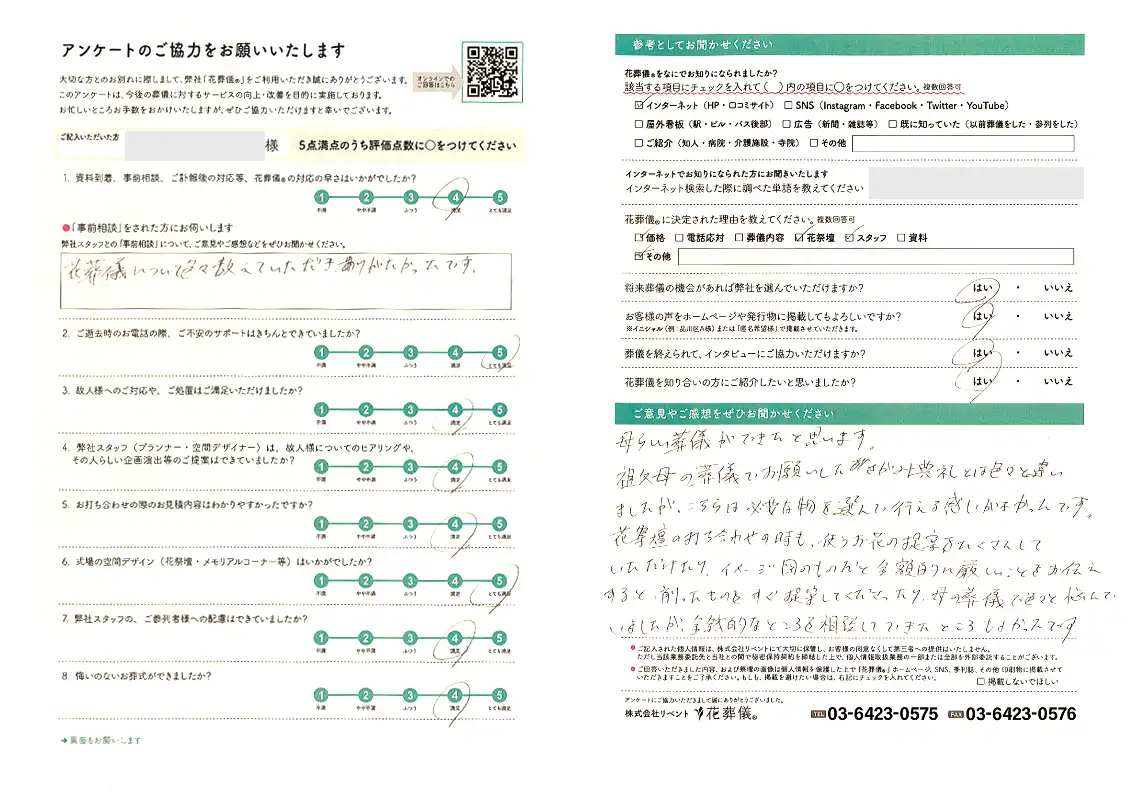 アンケートのご協力をお願いいたします
大切な方とのお別れに際しまして、弊社「花葬儀®」をご利用いただき誠にありがとうございます。
このアンケートは、今後の葬儀に対するサービスの向上・改善を目的に実施しております。
お忙しいところお手数をおかけいたしますが、ぜひご協力いただけますと幸いでございます。
オンラインでの
ご回答はこちら
ご記入いただいた方
様
5点満点のうち評価点数に○をつけてください
1. 資料到着、事前相談、ご訃報後の対応等、花葬儀®の対応の早さはいかがでしたか?
1 2 3 4 5
不満 やや不満 ふつう 満足 とても満足
●「事前相談」をされた方にお伺いします
弊社スタッフとの「事前相談」について、ご意見やご感想などをぜひお聞かせください。
花葬儀について色々教えていただき、ありがたかったです。
2. ご逝去時のお電話の際、ご不安のサポートはきちんとできていましたか?
1 2 3 4 5
不満 やや不満 ふつう 満足 とても満足
3. 故人様へのご対応や、ご処置はご満足いただけましたか?
1 2 3 4 5
不満 やや不満 ふつう 満足 とても満足
4. 弊社スタッフ(プランナー・空間デザイナー)は、故人様についてのヒアリングや、
その人らしい企画演出等のご提案はできていましたか?
1 2 3 4 5
不満 やや不満 ふつう 満足 とても満足
5. お打ち合わせの際のお見積内容はわかりやすかったですか?
1 2 3 4 5
不満 やや不満 ふつう 満足 とても満足
6. 式場の空間デザイン(花祭壇・メモリアルコーナー等)はいかがでしたか?
1 2 3 4 5
不満 やや不満 ふつう 満足 とても満足
7. 弊社スタッフの、ご参列者様への配慮はできていましたか?
1 2 3 4 5
不満 やや不満 ふつう 満足 とても満足
8. 悔いのないお葬式ができましたか?
1 2 3 4 5
不満 やや不満 ふつう 満足 とても満足
➔裏面もお願いします
参考としてお聞かせください
花葬儀®をなにでお知りになられましたか?
該当する項目にチェックを入れて( )内の項目に○をつけてください。複数回答可
☑インターネット(HP・口コミサイト) □SNS(Instagram・Facebook・Twitter・YouTube)
□屋外看板(駅・ビル・バス後部) □広告(新聞・雑誌等) □既に知っていた(以前葬儀をした・参列をした)
□ご紹介(知人・病院・介護施設・寺院) □その他
インターネットでお知りになられた方にお聞きいたします
インターネット検索した際に調べた単語を教えてください
花葬儀®に決定された理由を教えてください。複数回答可
☑価格 □電話応対 □葬儀内容 ☑花祭壇 ☑スタッフ □資料
☑その他
将来葬儀の機会があれば弊社を選んでいただけますか? はい ・ いいえ
お客様の声をホームページや発行物に掲載してもよろしいですか? はい ・ いいえ
※イニシャル(例:品川区A様)または「匿名希望様」で掲載させていただきます。
葬儀を終えられて、インタビューにご協力いただけますか? はい ・ いいえ
花葬儀を知り合いの方にご紹介したいと思いましたか? はい ・ いいえ
ご意見やご感想をぜひお聞かせください
母らしい葬儀ができたと思います。
祖父母の葬儀でお願いした さがみ典礼とは色々と違い
ましたが、こちらは必要な物を選んで行える感じがよかったです。
花祭壇の打ち合わせの時も、使うお花の提案をたくさんして
いただけたり、イメージ図のものだと金額的に厳しいことをお伝え
すると、削ったものをすぐ提案してくださったり、母の葬儀で色々と悩んで
いましたが、金銭的なところを相談してできたところもよかったです
●ご記入された個人情報は、株式会社リベントにて大切に保管し、お客様の同意なくして第三者への提供はいたしません。
ただし当該業務委託先と当社との間で秘密保持契約を締結した上で、個人情報取扱業務の一部または全部を外部委託することがございます。
●ご回答いただきました内容、および祭壇の画像は個人情報を保護した上で「花葬儀®」ホームページ、SNS、季刊誌、その他 印刷物に掲載させて
いただきますことをご了承ください。もしも、掲載を避けたい場合は、右記にチェックを入れてください。 □掲載しないでほしい
アンケートにご協力いただきまして誠にありがとうございました。
株式会社リベント 花葬儀® TEL 03-6423-0575 FAX 03-6423-0576